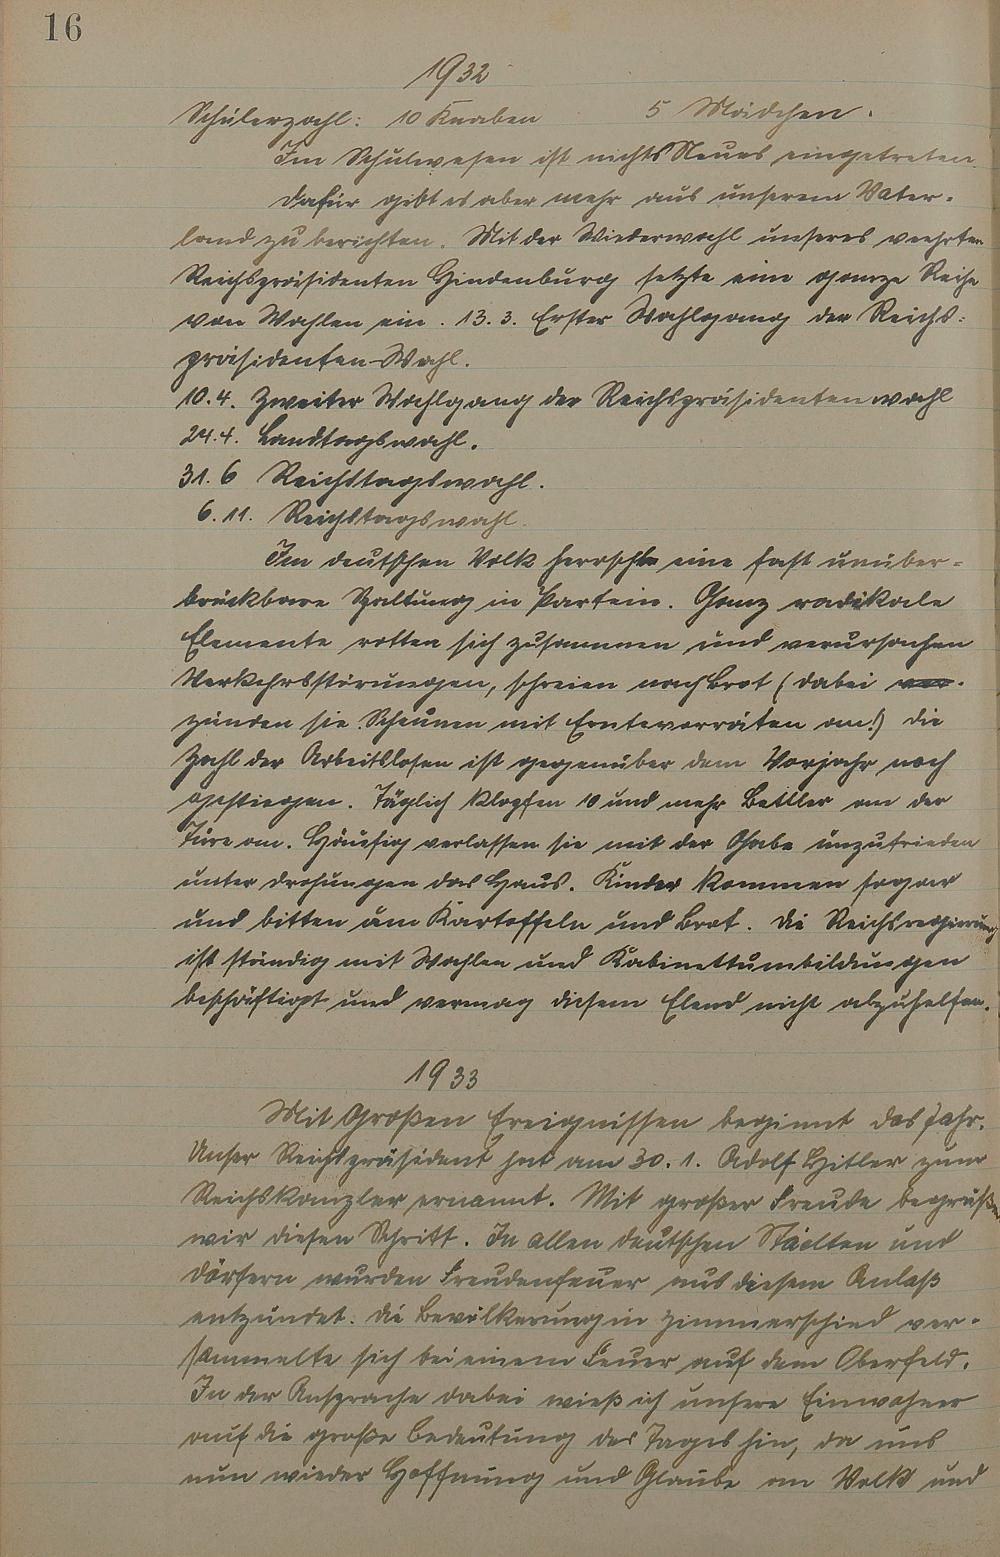 16
1932
Schülerzahl: 10 Knaben 5 Mädchen.
Im Schulwesen ist nichts Neues eingetreten.
Dafür gibt es aber mehr aus unserem Vater-
land zu berichten. Mit der Wiederwahl unseres verehrten
Reichspräsidenten Hindenburg setzte eine ganze Reihe
von Wahlen ein. 13.3. Erster Wahlgang der Reichs-
präsidenten-Wahl.
10.4. Zweiter Wahlgang der Reichspräsidentenwahl
24.4. Landtagswahl.
31.6 Reichstagswahl.
6.11. Reichstagswahl.
Im deutschen Volk herrschte eine fast unüber-
brückbare Spaltung in Partein. Ganz radikale
Elemente rotten sich zusammen und verursachen
Verkehrsstörungen, schreien nach Brot (dabei
zünden sie Scheunen mit Erntevorräten an!) Die
Zahl der Arbeitslosen ist gegenüber dem Vorjahr noch
gestiegen. Täglich klopfen 10 und mehr Bettler an der
Türe an. Häufig verlassen sie mit der Gabe unzufrieden
unter Drohungen das Haus. Kinder kommen sogar
und bitten um Kartoffeln und Brot. Die Reichsregierung
ist ständig mit Wahlen und Kabinettumbildungen
beschäftigt und vermag diesem Elend nicht abzuhelfen.
1933
Mit Großen Ereignissen beginnt das Jahr.
Unser Reichspräsident hat am 30.1. Adolf Hitler zum
Reichskanzler ernannt. Mit großer Freude begrüßen
wir diesen Schritt. In allen deutschen Städten und
Dörfern wurden Freudenfeuer aus diesem Anlaß
entzündet. Die Bevölkerung in Zimmerschied ver-
sammelte sich bei einem Feuer auf dem Oberfeld.
In der Ansprache dabei wieß ich unsere Einwohner
auf die große Bedeutung des Tages hin, da uns
nun wieder Hoffnung und Glaube an Volk und